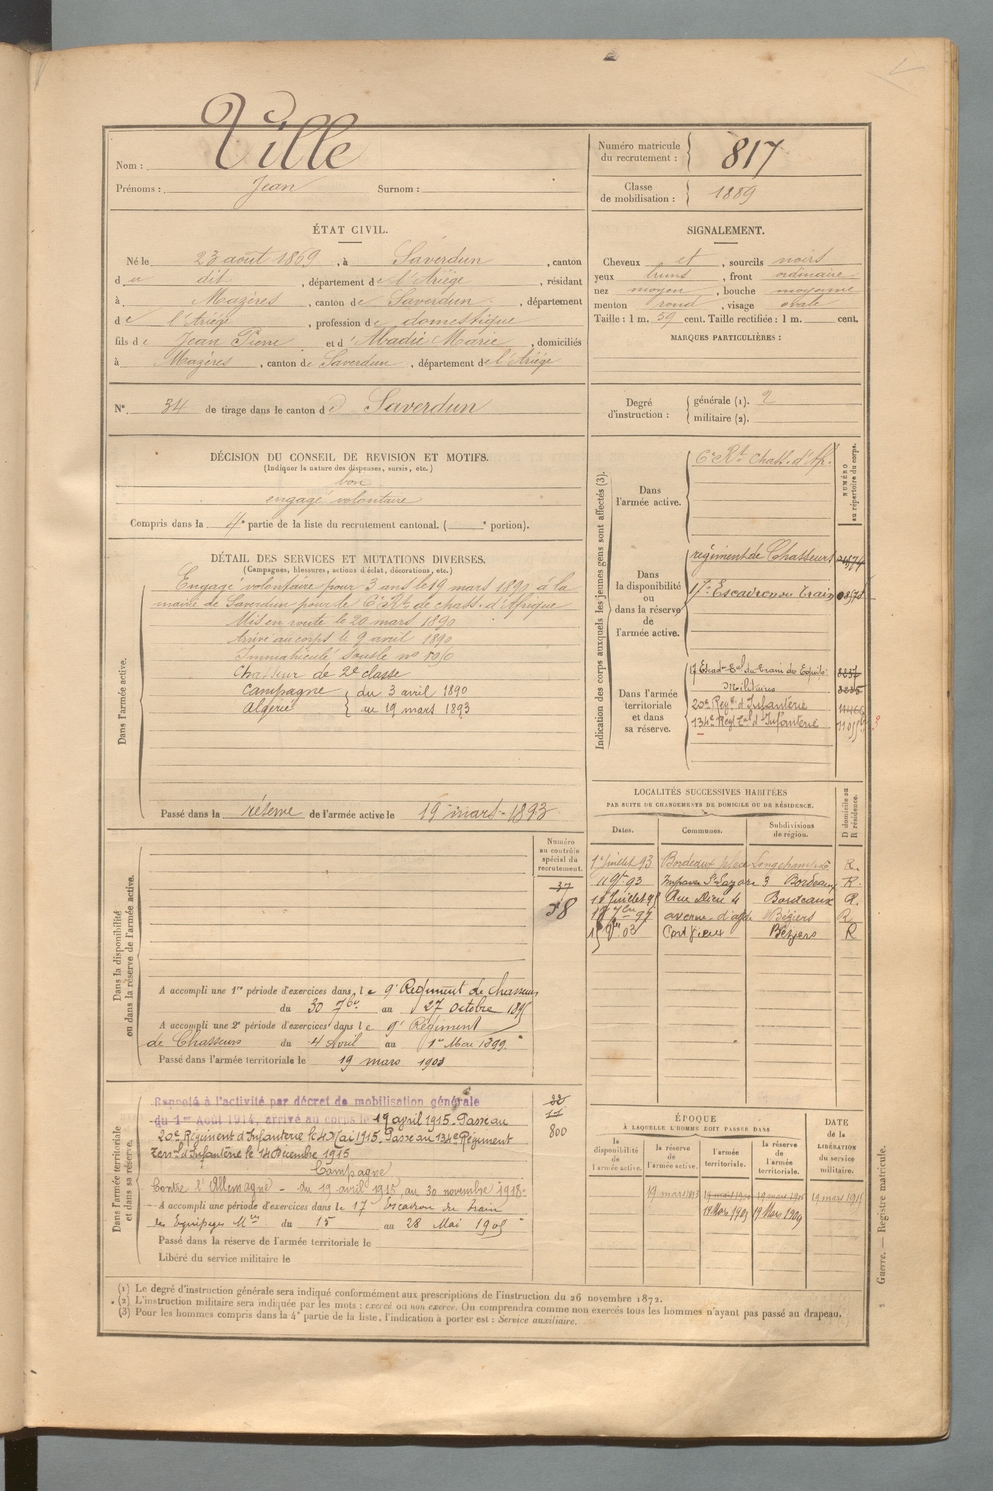 Nom : Ville
Prénoms : Jean Surnom :
Numéro matricule du recrutement : 817
Classe de mobilisation : 1889
ÉTAT CIVIL.
Né le 23 août 1869, à Saverdun, canton
du dit, département de l'Ariège, résidant
à Mazères, canton de Saverdun, département
de l'Ariège, profession de domestique
fils de Jean Pierre et d'Abadie Marie, domiciliés
à Mazères, canton de Saverdun, département de l'Ariège
N° 34 de tirage dans le canton de Saverdun
SIGNALEMENT.
Cheveux et, sourcils noirs
yeux bruns, front ordinaire
nez moyen, bouche moyenne
menton rond, visage ovale
Taille : 1 m. 59 cent. Taille rectifiée : 1 m. cent.
MARQUES PARTICULIÈRES :
Degré d'instruction : générale (1). 2
militaire (2).
DÉCISION DU CONSEIL DE REVISION ET MOTIFS.
(Indiquer la nature des dispenses, sursis, etc.)
bon
engagé volontaire
Compris dans la 4e partie de la liste du recrutement cantonal. ( e portion).
DÉTAIL DES SERVICES ET MUTATIONS DIVERSES.
(Campagnes, blessures, actions d'éclat, décorations, etc.)
Dans l'armée active.
Engagé volontaire pour 3 ans le 19 mars 1890 à la
mairie de Saverdun pour le 6e Rt de chass. d'Afrique
Mis en route le 20 mars 1890
Arrivé au corps le 9 avril 1890
Immatriculé sous le n°
Chasseur de 2e classe
Campagne du 3 avril 1890
Algérie au 19 mars 1893
Passé dans la réserve de l'armée active le 19 mars 1893
Indication des corps auxquels les jeunes gens sont affectés (3).
NUMÉRO au répertoire du corps.
Dans l'armée active.
6e Rt Chass. d'Af.
Dans la disponibilité ou dans la réserve de l'armée active.
régiment de Chasseurs
17e Escadron du Train
Dans l'armée territoriale et dans sa réserve.
17 Escad. Eal du train des Equip.
Militaires
20e Regt d'Infanterie
134e Regt Tal d'Infanterie
LOCALITÉS SUCCESSIVES HABITÉES
PAR SUITE DE CHANGEMENTS DE DOMICILE OU DE RÉSIDENCE.
D domicile ou R résidence.
Dates. Communes. Subdivisions de région.
1er juillet 93 Bordeaux place Longchamps R.
11 9bre 93 Impasse St Lazare 3 Bordeaux R.
Juillet 95 Rue Dieu 4 Bordeaux R.
7bre 97 avenue d'agde Béziers R
03 Béziers R
Dans la disponibilité ou dans la réserve de l'armée active.
Numéro au contrôle spécial du recrutement.
37
38
A accompli une 1re période d'exercices dans le 9e Régiment de chasseurs
du 30 7bre au 27 octobre 1895
A accompli une 2e période d'exercices dans le 9e Régiment
de Chasseurs du 4 Avril au 1er Mai 1899.
Passé dans l'armée territoriale le 19 mars 1903
Dans l'armée territoriale et dans sa réserve.
800
Rappelé à l'activité par décret de mobilisation générale
du 1er Août 1914, arrivé au corps le 19 avril 1915. Passé au
20e Régiment d'Infanterie le 4 Mai 1915. Passé au 134e Régiment
Terral d'Infanterie le 14 Décembre 1915
Campagne
Contre l'Allemagne - du 19 avril 1915, au 30 novembre 1918.
A accompli une période d'exercices dans le 17e escadron du train
des équipages Mres du 15 au 28 Mai 1905
Passé dans la réserve de l'armée territoriale le
Libéré du service militaire le
ÉPOQUE
À LAQUELLE L'HOMME DOIT PASSER DANS
DATE de la LIBÉRATION du service militaire.
la disponibilité de l'armée active. la réserve de l'armée active. l'armée territoriale. la réserve de l'armée territoriale.
19 mars 1893 19 mars 1915
19 Mars 1903 19 Mars 1909
(1) Le degré d'instruction générale sera indiqué conformément aux prescriptions de l'instruction du 26 novembre 1872.
(2) L'instruction militaire sera indiquée par les mots : exercé ou non exercé. On comprendra comme non exercés tous les hommes n'ayant pas passé au drapeau.
(3) Pour les hommes compris dans la 4e partie de la liste, l'indication à porter est : Service auxiliaire.
Guerre. — Registre matricule.